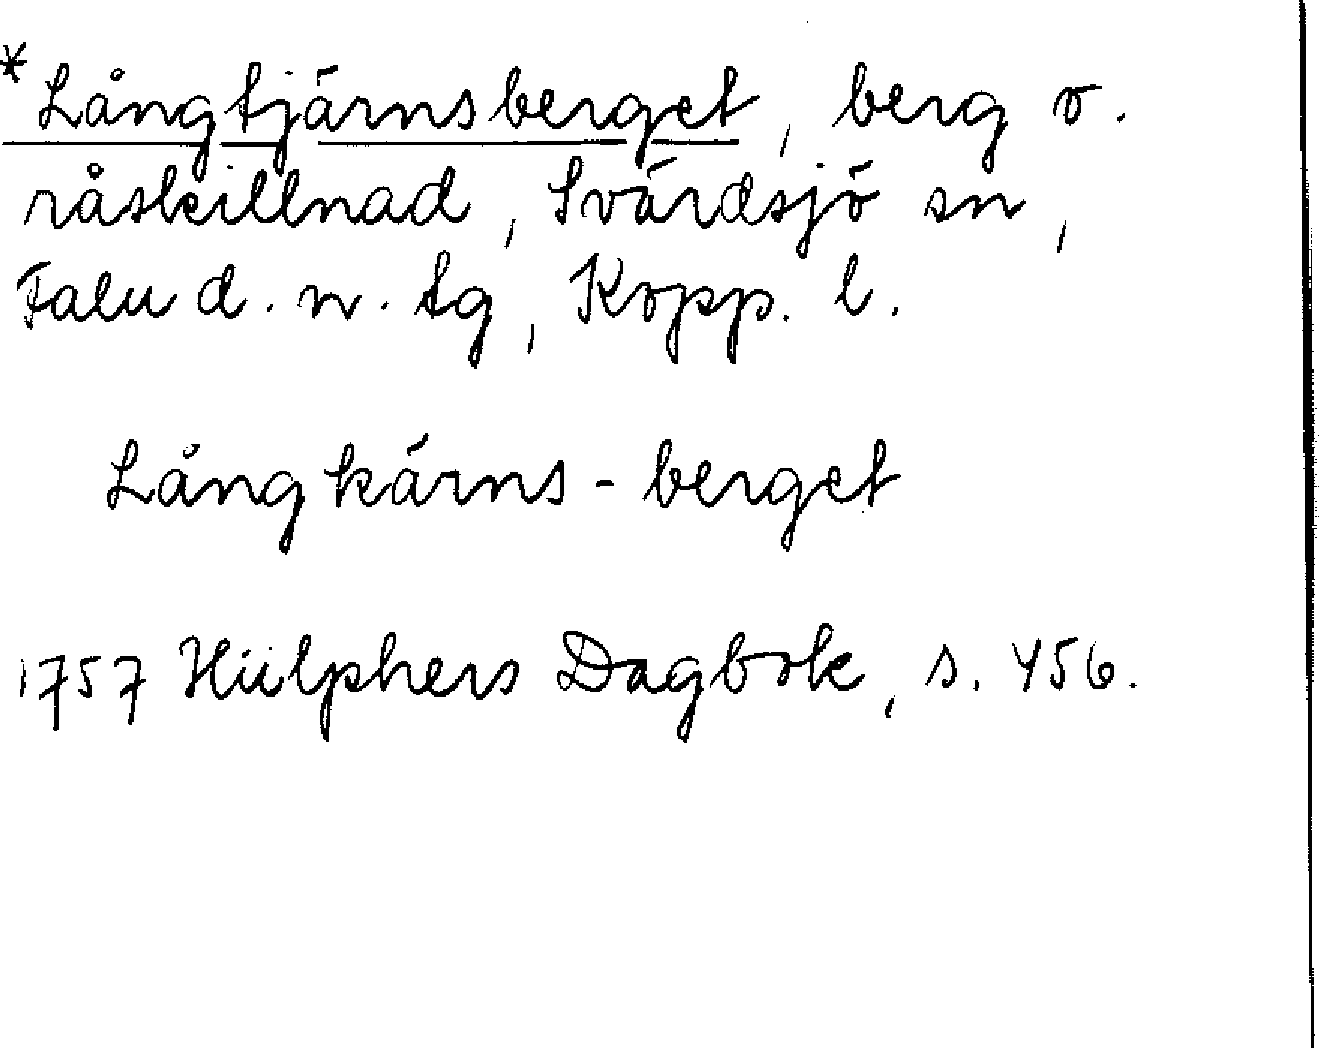 *Långtjärnsberget, berg o.
råskillnad, Svärdsjö sn,
Falu d. n. tg, Kopp. l.
Långkärns-berget
1757 Hülphers Dagbok, s. 456.